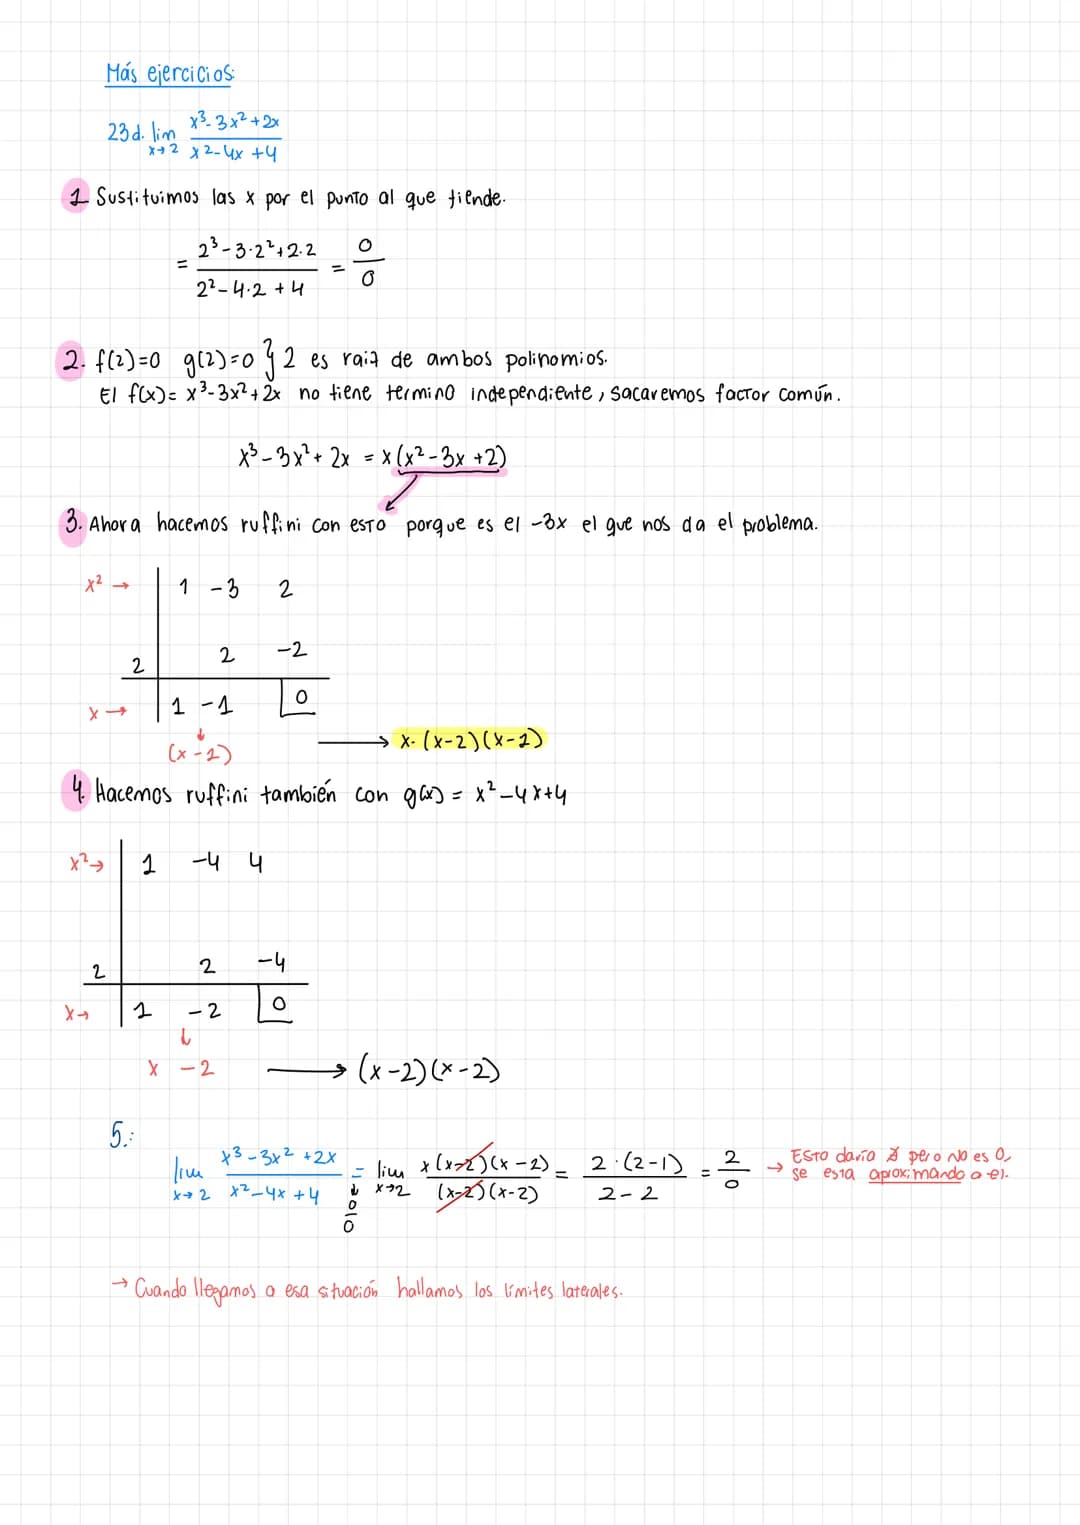 Más ejercicios:
23d. lim x→2 x³-3x²+2x / x²-4x+4
1 Sustituimos las x por el punto al que tiende.
= 2³-3·2²+2·2 / 2²-4·2+4 = 0/0
2. f(2)=0 g(2)=0 } 2 es raiz de ambos polinomios.
El f(x)= x³-3x²+2x no tiene termino independiente, sacaremos factor común.
x³-3x²+2x = x(x²-3x+2)
3. Ahora hacemos ruffini con esto porque es el -3x el que nos da el problema.
x² → 1 -3 2
2 2 -2
x → 1 -1 0
(x-1) → x·(x-2)(x-1)
4. Hacemos ruffini también con g(x) = x²-4x+4
x² → 1 -4 4
2 2 -4
x → 1 -2 0
x -2 → (x-2)(x-2)
5.:
lim x→2 x³-3x²+2x / x²-4x+4 = 0/0 lim x→2 x(x-2)(x-2) / (x-2)(x-2) = 2·(2-1) / 2-2 = 2/0 → Esto daría ∄ pero no es 0,
se esta aproximando a el.
→ Cuando llegamos a esa situación hallamos los límites laterales.